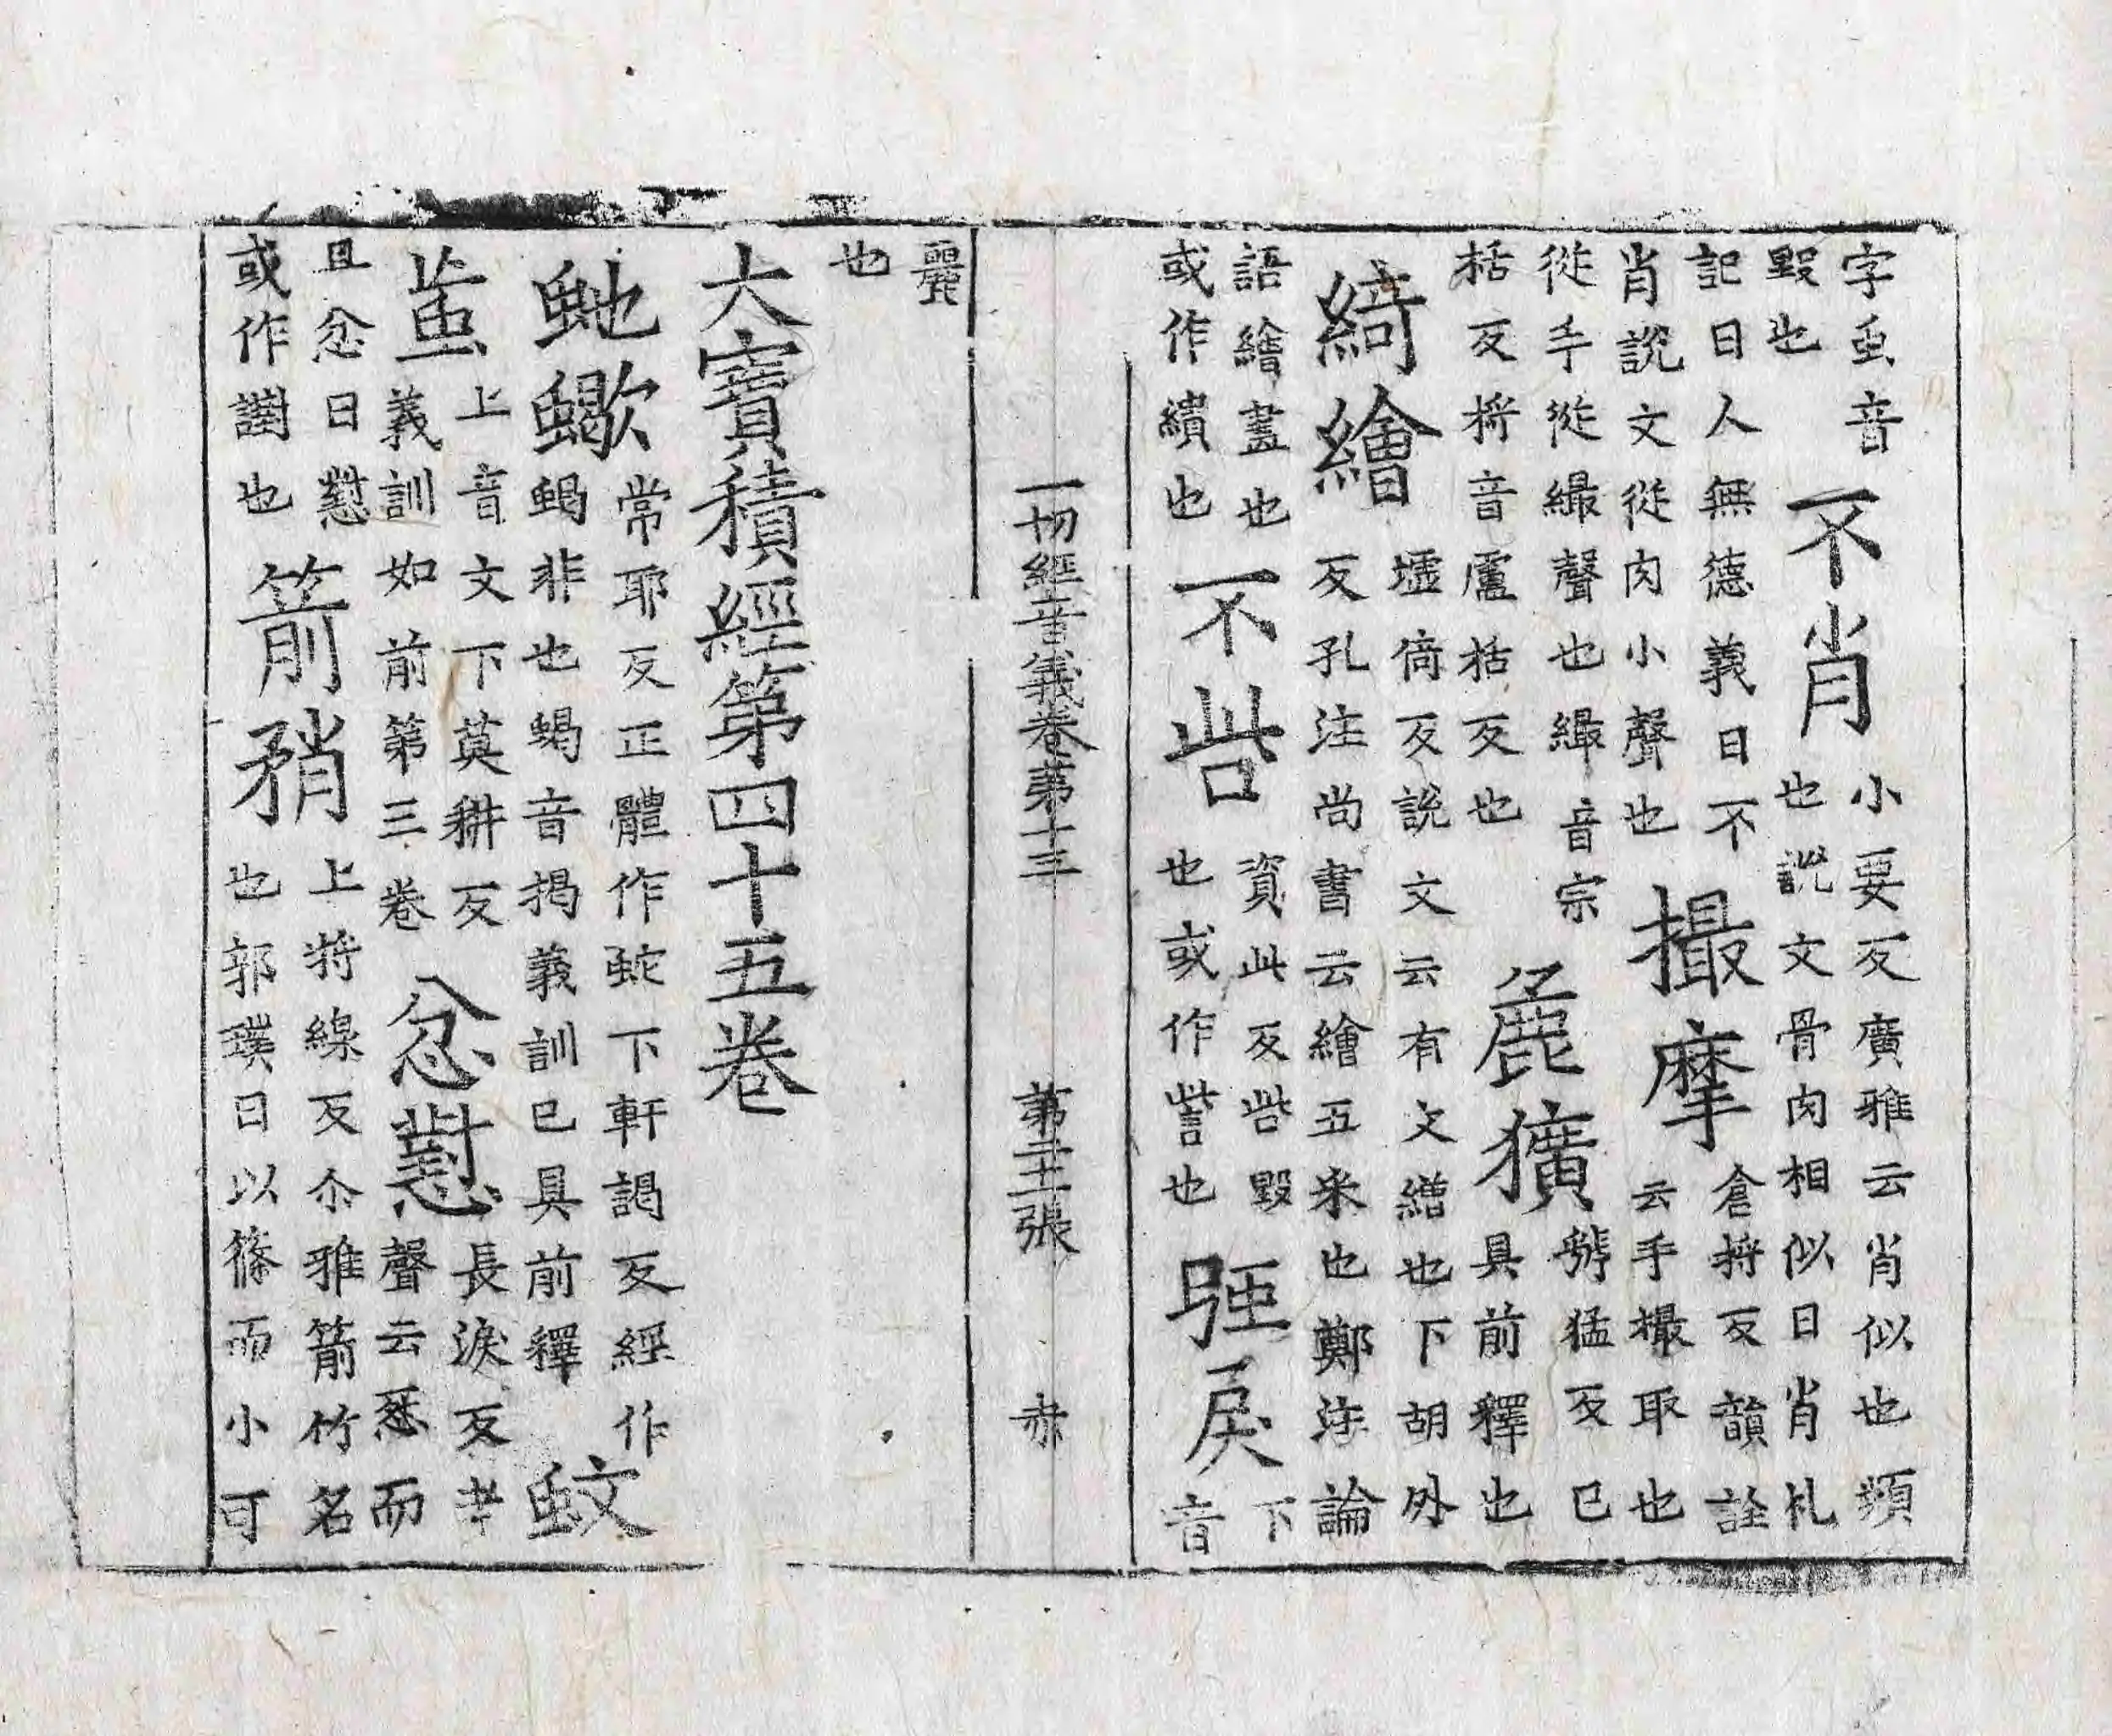 字䖝音毀也不肖小要反廣雅云肖似也類也說文骨肉相似曰肖札
記曰人無德義曰不肖說文從肉小聲也撮摩倉捋反韻詮云手撮取也
從手從繓聲也繓音宗括反捋音盧括反也麁獷虢猛反已具前釋也
綺繪墟倚反說文云有文繒也下胡外反孔注尚書云繪五采也鄭注論
語繪畫也或作繢也不呰資此反呰毀也或作訾也戾下音
一切經音義卷第十三 第張 赤
麗也
大寶積經第四十五卷
虵蠍常耶反正體作蛇下軒謁反經作蝎非也蝎音揭義訓已具前釋蚊
蝱上音文下莫耕反義訓如前第三卷忿懟長淚反考聲云怨而
且忿曰懟或作譵也箭矟上將線反尒雅箭竹名也郭璞曰以篠而小可